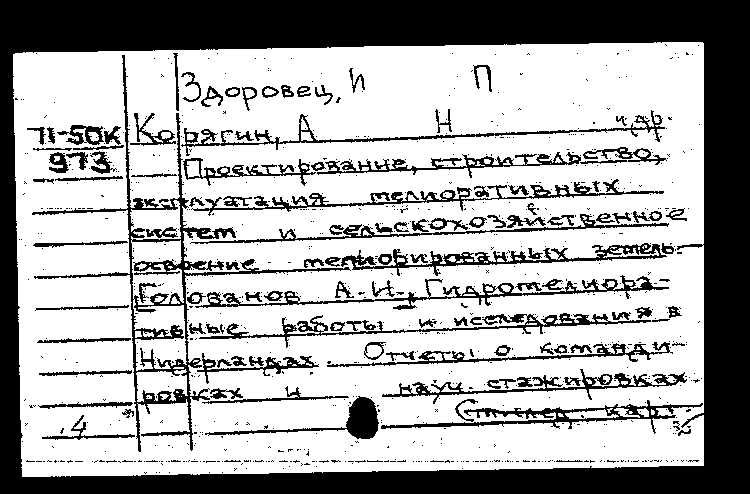 Здоровец, И П
71-50К Корягин, А Н и др.
973 Проектирование, строительство,
эксплуатация мелиоративных
систем и сельскохозяйственное
освоение мелиорированных земель.
Голованов А.И., Гидромелиора-
тивные работы и исследования в
Нидерландах. Отчеты о команди-
ровках и науч. стажировках
.4 карт